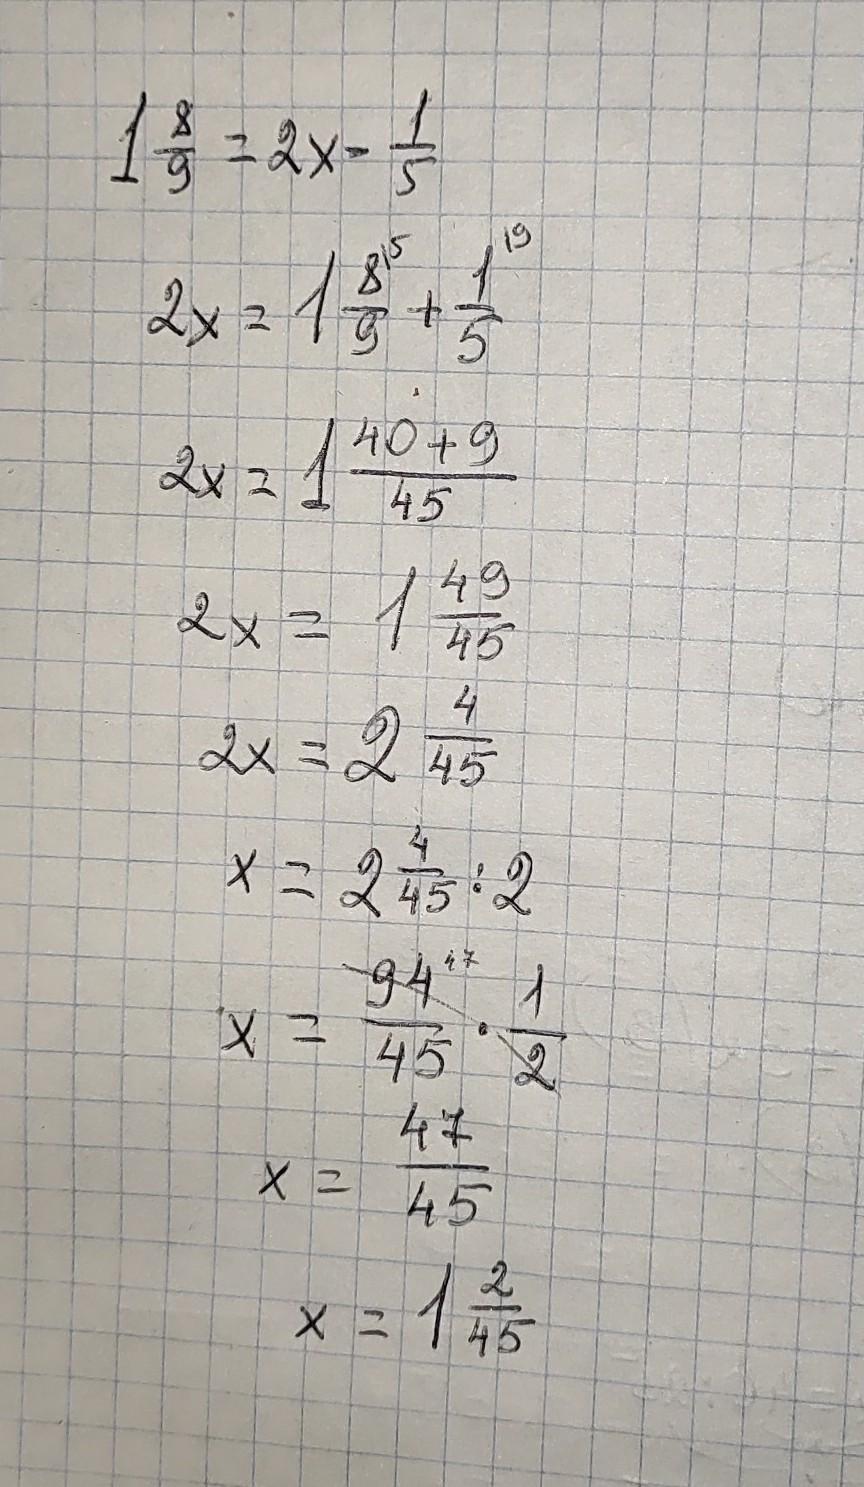 1 8/9 = 2x - 1/5
2x = 1 8/9 ⁾⁵ + 1/5 ⁾⁹
2x = 1 (40+9)/45
2x = 1 49/45
2x = 2 4/45
x = 2 4/45 : 2
x = 94/45 ⁴⁷ · 1/2
x = 47/45
x = 1 2/45